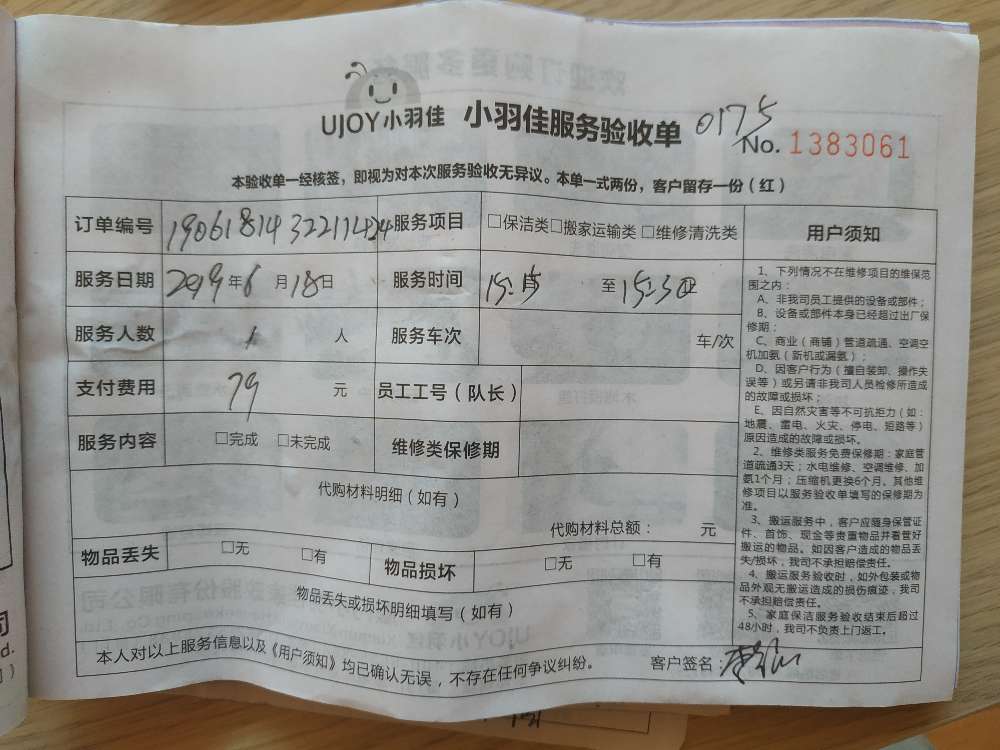 UJOY小羽佳 小羽佳服务验收单 0175
No. 1383061
本验收单一经核签，即视为对本次服务验收无异议。本单一式两份，客户留存一份（红）
订单编号 服务项目 □保洁类□搬家运输类 □维修清洗类
服务日期 2019年6月18日 服务时间 至 15:30
服务人数 1 人 服务车次 车/次
支付费用 79 元 员工工号（队长）
服务内容 □完成 □未完成 维修类保修期
代购材料明细（如有）
代购材料总额： 元
物品丢失 □无 □有 物品损坏 □无 □有
物品丢失或损坏明细填写（如有）
本人对以上服务信息以及《用户须知》均已确认无误，不存在任何争议纠纷。 客户签名：
用户须知
1、下列情况不在维修项目的维保范
围之内：
A、非我司员工提供的设备或部件；
B、设备或部件本身已经超过出厂保
修期；
C、商业（商铺）管道疏通、空调空
机加氨（新机或漏氨）；
D、因客户行为（擅自装卸、操作失
误等）或另请非我司人员检修所造成
的故障或损坏；
E、因自然灾害等不可抗拒力（如：
地震、雷电、火灾、停电、短路等）
原因造成的故障或损坏。
2、维修类服务免费保修期：家庭管
道疏通3天；水电维修、空调维修、加
氨1个月；压缩机更换6个月。其他维
修项目以服务验收单填写的保修期为
准。
3、搬运服务中，客户应随身保管证
件、首饰、现金等贵重物品并看管好
搬运的物品。如因客户造成的物品丢
失/损坏，我司不承担赔偿责任。
4、搬运服务验收时，如外包装或物
品外观无搬运造成的损伤痕迹，我司
不承担赔偿责任。
5、家庭保洁服务验收结束后超过
48小时，我司不负责上门返工。